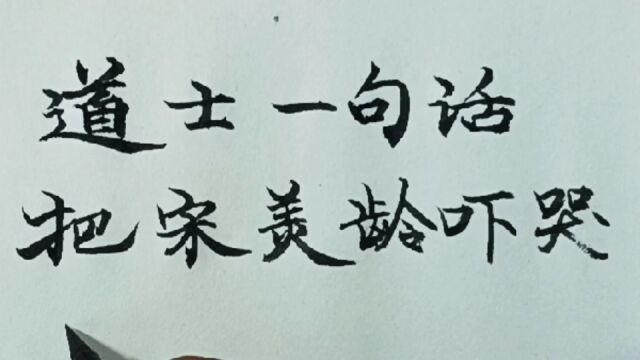 道士一句话
把宋美龄吓哭